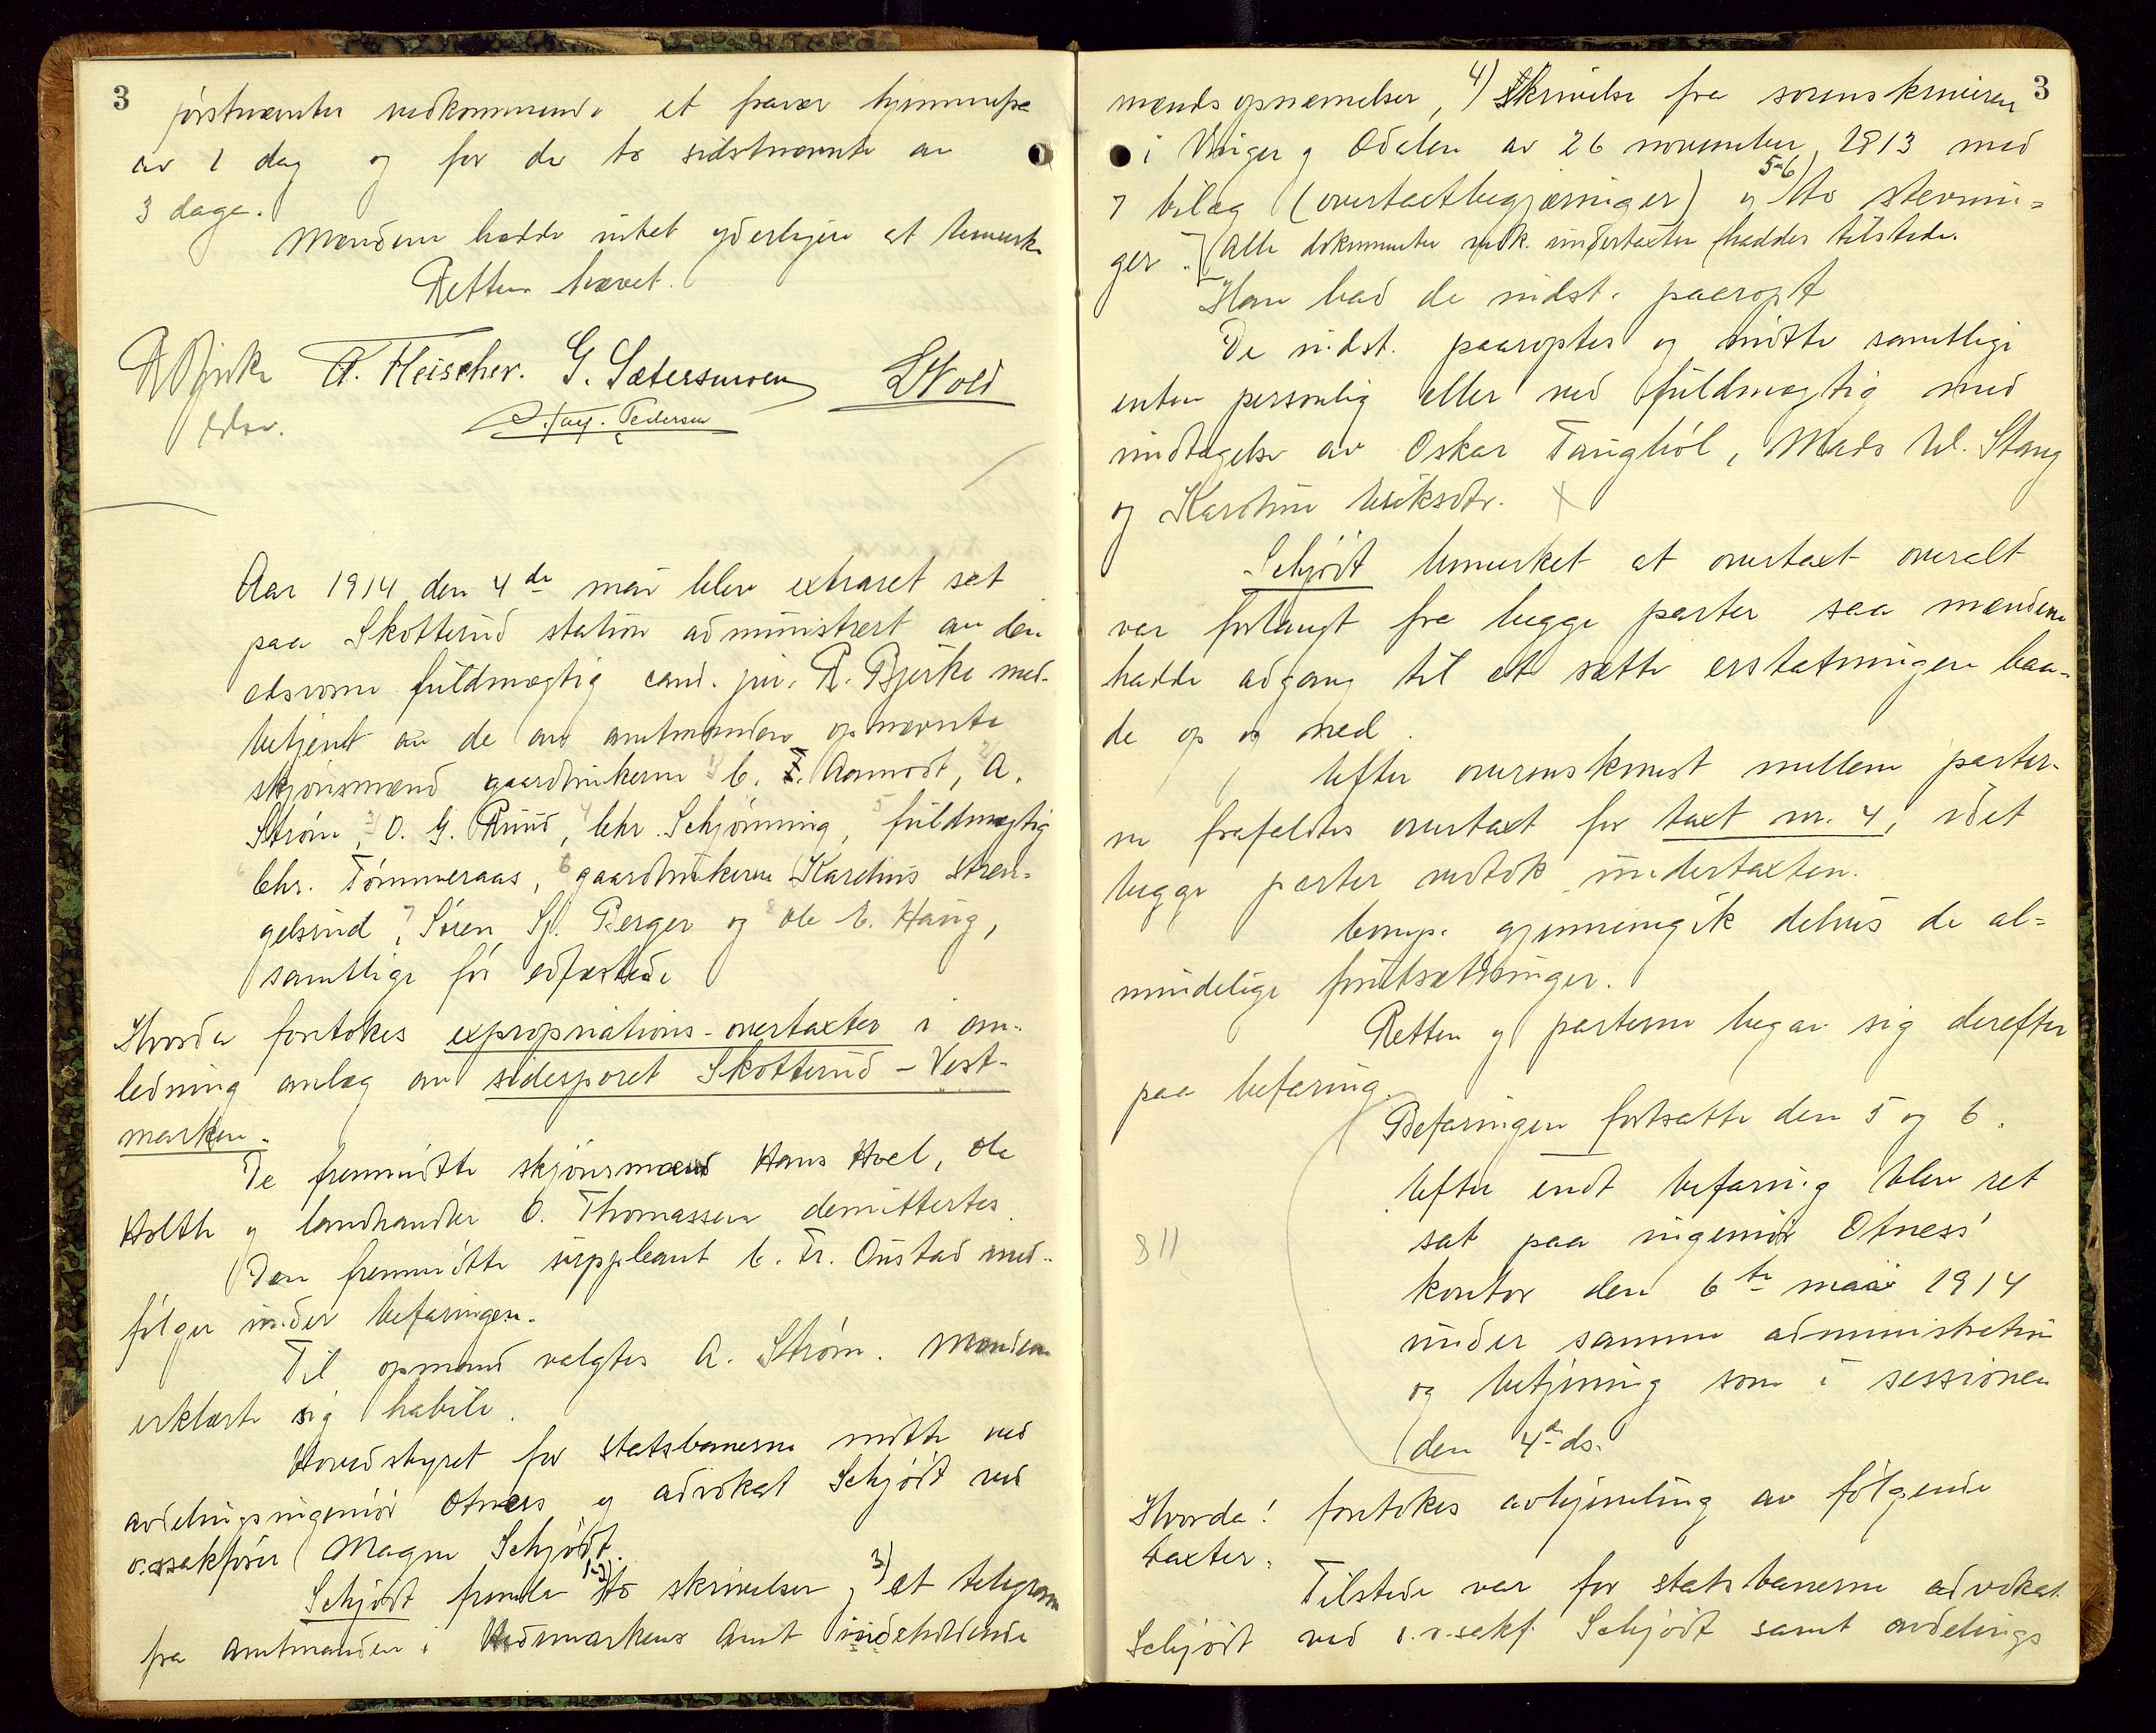 3
førstnævntes vedkommende et fravær hjemmefra
av 1 dag og for de to sidstnævnte av
3 dage.
Mændene hadde intet yderligere at bemerke
Retten hævet.
R Bjerke A. Fleischer. G. Sætersmoen LWold
edsv. Aug. Pedersen
Aar 1914 den 4de mai blev extraret sat
paa Skotterud station administrert av den
edsvorne fuldmægtig cand. jur. R. Bjerke med-
betjent av de av amtmanden opnævnte
skjønsmænd gaardbrukerne 1) C. F. Aamodt, 2) A.
Strøm, 3) O. G. Ruud, 4) Chr. Schjønning, 5 fuldmægtig
Chr. Tømmeraas, 6 gaardbrukerne Karelius Stren-
gelsrud, 7 Søren Sj. Berger og 8 Ole C. Haug,
samtlige før edfæstede
Hvorda foretokes expropriations-overtaxter i an-
ledning anlæg av sidesporet Skotterud - Vest-
marken.
De fremmøtte skjønsmænd Hans Hoel, Ole
Holth og landhandler O. Thomassen demittertes.
Den fremmøtte suppleant C. Fr. Onstad med-
følger under befaringen.
Til opmand valgtes A. Strøm. Mændene
erklærte sig habile.
Hovedstyret for statsbanerne møtte ved
avdelingsingeniør Otness og advokat Schjødt ved
o.r.sakfører Magne Schjødt.
Schjødt fremla 1-2) to skrivelser, 3) et telegram
fra amtmanden i Hedemarkens amt indeholdende
3
mændsopnævnelser, 4) Skrivelse fra sorenskriveren
i Vinger og Odalen av 26 november 1913 med
7 bilag (overtaxtbegjæringer) og 5-6) to stevnin=
ger. [Alle dokumenter vedk. undertaxten haddes tilstede.
Han bad de indst. paaropt
De indst. paaroptes og møtte samtlige
enten personlig eller ved fuldmægtig med
undtagelse av Oskar Taugbøl, Mads W. Stang
og Karoline Eriksdtr. X
Schjødt bemerket at overtaxt overalt
var forlangt fra begge parter saa mændene
hadde adgang til at sætte erstatningen baa-
de op og ned.
Efter overenskomst mellem parter-
ne frafaldtes overtaxt for taxt nr. 4, idet
begge parter vedtok undertaxten.
Comp. gjennemgik delvis de al=
mindelige forutsætninger.
Retten og parterne begav sig derefter
paa befaring.
Befaringen fortsatte den 5 og 6.
Efter endt befaring blev ret
sat paa ingeniør Otness'
kontor den 6te mai 1914
under samme administration
og betjening som i sessionen
den 4de ds.
Hvorda! foretokes avhjemling av følgende
taxter:
Tilstede var for statsbanerne advokat
Schjødt ved o.r.sakf. Schjødt samt avdelings